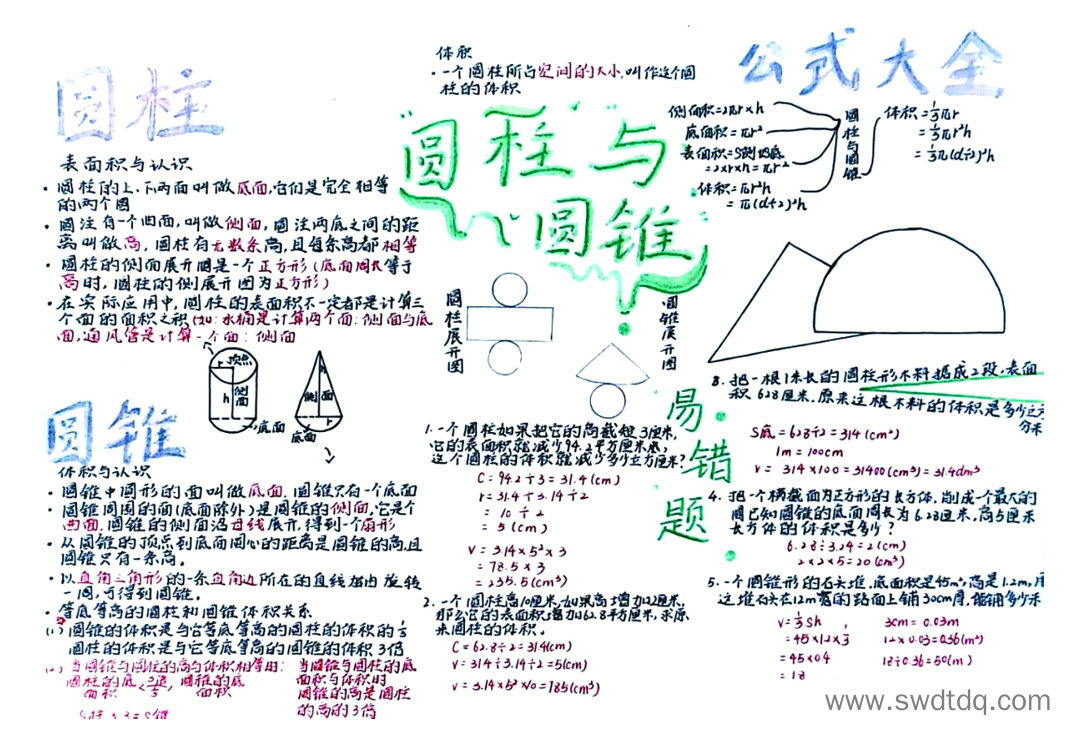 圆柱
表面积与认识
·圆柱的上、下两面叫做底面,它们是完全相等
的两个圆
·圆注有一个曲面,叫做侧面,圆注两底之间的距
离叫做高,圆柱有无数条高,且每条高都相等
·圆柱的侧面展开圆是一个正方形(底面周长等于
高时,圆柱的侧展开图为正方形)
·在实际应用中,圆柱的表面积不一定都是计算三
个面的面积之积(如:水桶是计算两个面:侧面与底
面,通风管是计算一个面:侧面
顶点
r
h
侧面
底面
h
侧面
r
底面
圆锥
体积与认识
·圆锥中圆形的面叫做底面,圆锥只有一个底面
·圆锥周围的面(底面除外)是圆锥的侧面,它是个
曲面,圆锥的侧面沿母线展开,得到一个扇形
·从圆锥的顶点到底面圆心的距离是圆锥的高且
圆锥只有一条高。
·以直角三角形的一条直角边所在的直线轴旋转
一周,可得到圆锥。
·等底等高的圆柱和圆锥体积关系
(1)圆锥的体积是与它等底等高的圆柱的体积的1/3
圆柱的体积是与它等底等高的圆锥的体积3倍
(2)当圆锥与圆柱的高与体积相等时:
圆柱的底面积 圆锥的底面积
当圆锥与圆柱的底
面积与体积时
圆锥的高是圆柱
的高的3倍
体积
·一个圆柱所占空间的大小,叫作这个圆
柱的体积
"圆柱与
圆锥"
圆柱展开图
圆锥展开图
公式大全
侧面积=2πr×h
底面积=πr²
表面积=S侧+S底
=2×r×h=πr²
体积=πr²h
=π(d÷2)²h
圆柱与圆锥
体积=1/3πr
=1/3πr²h
=1/3π(d÷2)²h
易错题
1.一个圆柱如果把它的高截短3厘米,
它的表面积就减少94.2平方厘米,
这个圆柱的体积就减少多少立方厘米?
C=94.2÷3=31.4(cm)
r=31.4÷3.14÷2
=10÷2
=5(cm)
V=3.14×5²×3
=78.5×3
=235.5(cm³)
2.一个圆柱高10厘米,如果高增加2厘米,
那么它的表面积增加62.8平方厘米,求原
来圆柱的体积。
C=62.8÷2=31.4(cm)
V=31.4÷3.14÷2=5(cm)
V=3.14×5²×10=785(cm³)
3.把一根1米长的圆柱形木料锯成2段,表面
积628厘米,原来这根木料的体积是多少立方
分米
S底=628÷2=314(cm²)
1m=100cm
V=314×100=31400(cm³)=31.4dm³
4.把一个横截面为正方形的长方体,削成一个最大的
圆已知圆锥的底面周长为6.28厘米,高5厘米
长方体的体积是多少?
6.28÷3.24=2(cm)
2×2×5=20(cm³)
5.一个圆锥形的石头堆,底面积是45m²,高是1.2m,用
这堆石头在12m宽的路面上铺30cm厚,能铺多少米
V=1/3Sh
3cm=0.03m
=45×1.2×1/3
12×0.03=0.36(m²)
=45×0.4
18÷0.36=50(m)
=18
www.swdtdq.com